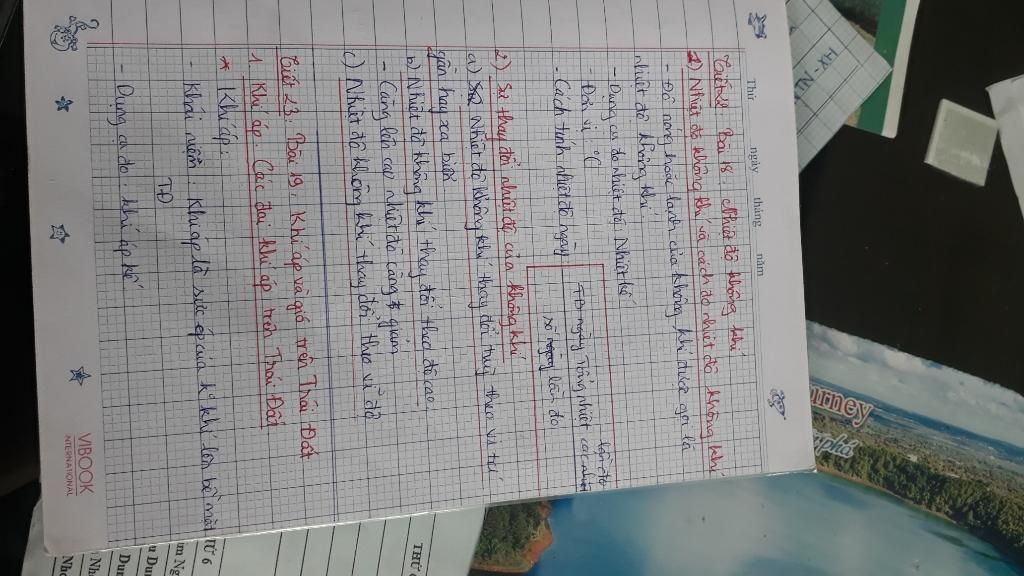 Thứ ngày tháng năm
Tiết 22: Bài 18: Nhiệt độ không khí
1) Nhiệt độ không khí và cách đo nhiệt độ không khí
- Độ nóng hoặc lạnh của không khí được gọi là
nhiệt độ không khí
- Dụng cụ đo nhiệt độ: Nhiệt kế
- Đơn vị °C
- Cách tính nhiệt độ ngày
TBngày = Tổng nhiệt các
lần đo
số lần đo
2) Sự thay đổi nhiệt độ của không khí
a) Nhiệt độ không khí thay đổi tuỳ theo vị trí
gần hay xa biển
b) Nhiệt độ không khí thay đổi theo độ cao:
- Càng lên cao nhiệt độ càng giảm
c) Nhiệt độ không khí thay đổi theo vĩ độ
Tiết 23: Bài 19: Khí áp và gió trên Trái Đất
1. Khí áp. Các đai khí áp trên Trái Đất
* Khí áp:
- Khái niệm: Khí áp là sức ép của k² khí lên bề mặt
TĐ
- Dụng cụ đo: khí áp kế
VIBOOK
INTERNATIONAL
TN - XH
urney
THỨ 6